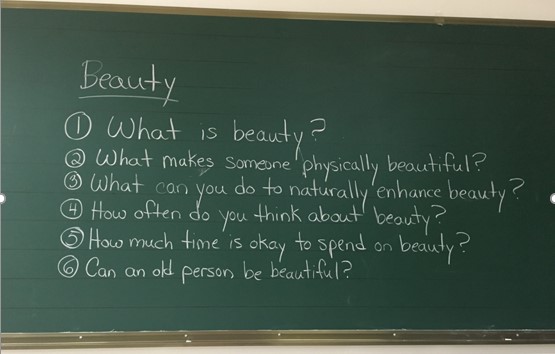 Beauty
① What is beauty?
② What makes someone physically beautiful?
③ What can you do to naturally enhance beauty?
④ How often do you think about beauty?
⑤ How much time is okay to spend on beauty?
⑥ Can an old person be beautiful?